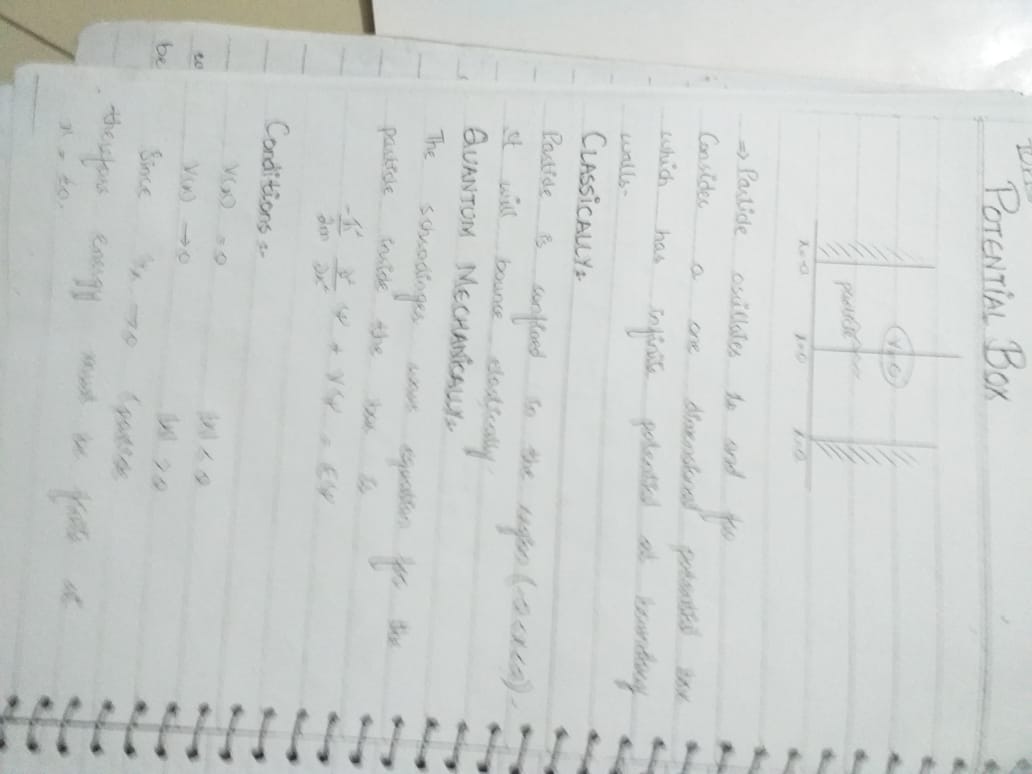 POTENTIAL BOX
V=0
particle
x=0
⇒ Particle oscillates to and fro
Consider a one dimensional potential box
which has infinite potential at boundary
walls-
CLASSICALLY:-
Particle is confined in the region (-a<x<a)-
It will bounce elastically
QUANTUM MECHANICALLY:-
The schrodinger wave equation for the
particle inside the box is
-ħ²/2m ∂²/∂x² Ψ + VΨ = EΨ
Conditions:-
V(x) = 0 |x| < a
V(x) → |x| > a
Since
therefore energy must be finite at
be